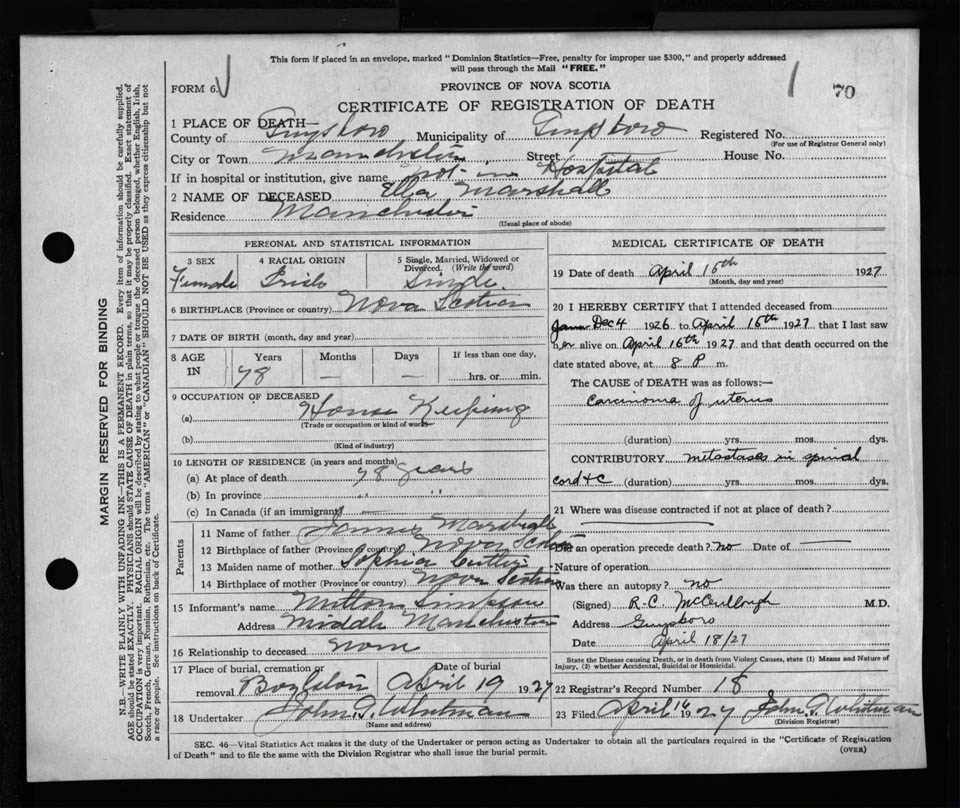 This form if placed in an envelope, marked "Dominion Statistics—Free, penalty for improper use $300," and properly addressed
will pass through the Mail "FREE."
FORM 6.
PROVINCE OF NOVA SCOTIA
70
CERTIFICATE OF REGISTRATION OF DEATH
1 PLACE OF DEATH—
County of Guysboro Municipality of Guysboro Registered No.
(For use of Registrar General only)
City or Town Manchester Street House No.
If in hospital or institution, give name not in Hospital
2 NAME OF DECEASED Ella Marshall
Residence Manchester
(Usual place of abode)
PERSONAL AND STATISTICAL INFORMATION
3 SEX 4 RACIAL ORIGIN 5 Single, Married, Widowed or Divorced. (Write the word)
Female Irish Single
6 BIRTHPLACE (Province or country) Nova Scotian
7 DATE OF BIRTH (month, day and year)
8 AGE IN Years Months Days If less than one day,
78 — — hrs. or min.
9 OCCUPATION OF DECEASED
(a) House Keeping
(Trade or occupation or kind of work)
(b)
(Kind of industry)
10 LENGTH OF RESIDENCE (in years and months)
(a) At place of death 78 years
(b) In province " "
(c) In Canada (if an immigrant) —
Parents
11 Name of father James Marshall
12 Birthplace of father (Province or country) Nova Scotian
13 Maiden name of mother Sophia Cutler
14 Birthplace of mother (Province or country) Nova Scotian
15 Informant's name Milton Simpson
Address Middle Manchester
16 Relationship to deceased None
17 Place of burial, cremation or removal Date of burial
Boylston April 19 1927
18 Undertaker John G. Whitman
(Name and address)
MEDICAL CERTIFICATE OF DEATH
19 Date of death April 16th 1927
(Month, day and year)
20 I HEREBY CERTIFY that I attended deceased from
Dec 4 1926 to April 16th 1927 that I last saw
her alive on April 16th 1927 and that death occurred on the
date stated above, at 8 P m.
The CAUSE of DEATH was as follows:—
Carcinoma of uterus
(duration) yrs. mos. dys.
CONTRIBUTORY metastases in spinal
cord &c (duration) yrs. mos. dys.
21 Where was disease contracted if not at place of death?
Did an operation precede death? no Date of —
Nature of operation
Was there an autopsy? no
(Signed) R.C. McCullough M.D.
Address Guysboro
Date April 18/27
State the Disease causing Death, or in death from Violent Causes, state (1) Means and Nature of
Injury, (2) whether Accidental, Suicidal or Homicidal.
22 Registrar's Record Number 18
23 Filed April 1927 John G. Whitman
(Division Registrar)
SEC. 46—Vital Statistics Act makes it the duty of the Undertaker or person acting as Undertaker to obtain all the particulars required in the "Certificate of Registration
of Death" and to file the same with the Division Registrar who shall issue the burial permit.
(OVER)
MARGIN RESERVED FOR BINDING
N.B.—WRITE PLAINLY WITH UNFADING INK—THIS IS A PERMANENT RECORD. Every item of information should be carefully supplied.
AGE should be stated EXACTLY. PHYSICIANS should STATE CAUSE OF DEATH in plain terms, so that it may be properly classified. Exact statement of
OCCUPATION is very important. RACIAL ORIGIN will be described by stating to what people or tongue the deceased person belonged, whether English, Irish,
Scotch, French, German, Russian, Ruthenian, etc. The terms "AMERICAN" or "CANADIAN" SHOULD NOT BE USED as they express citizenship but not
a race or people. See instructions on back of Certificate.